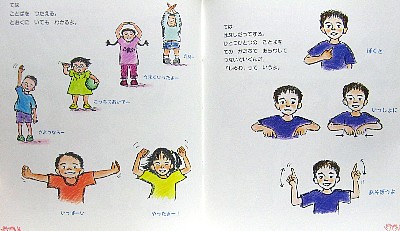 ては
ことばを つたえる。
とおくに いても わかるよ。
さようならー
こっちておいでー
うまくいったよー
いっぱーい
やったぁー!
ては
おはなしができる。
ひとつひとつの ことばを
ての かたちで あらわして
つないでいくんだ。
「しゅわ」って いうよ。
ぼくと
いっしょに
あそぼうよ